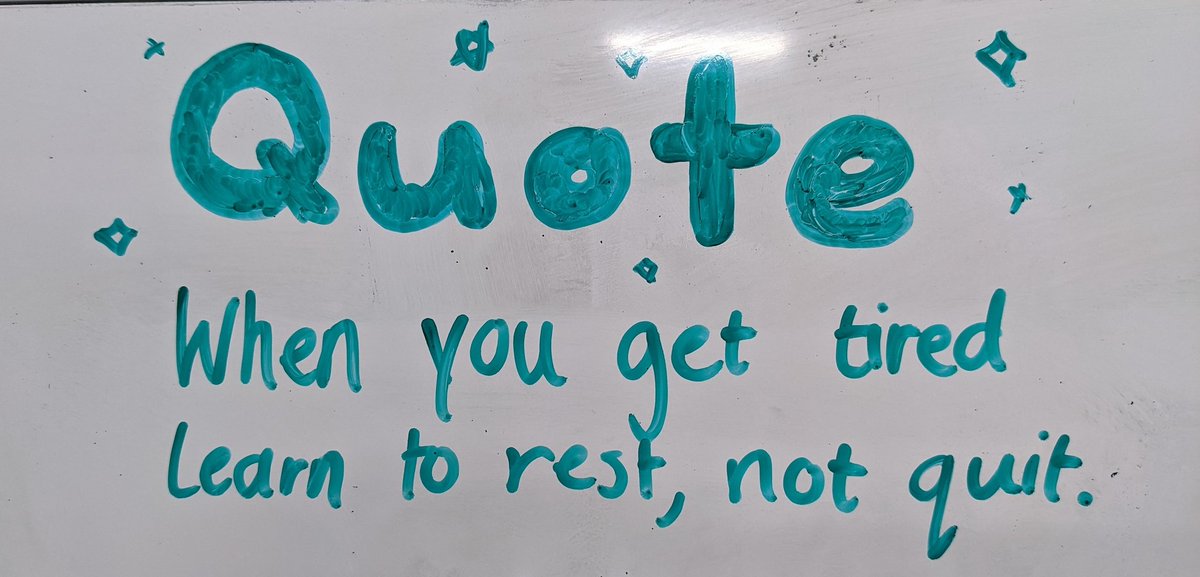 Quote
When you get tired
Learn to rest, not quit.